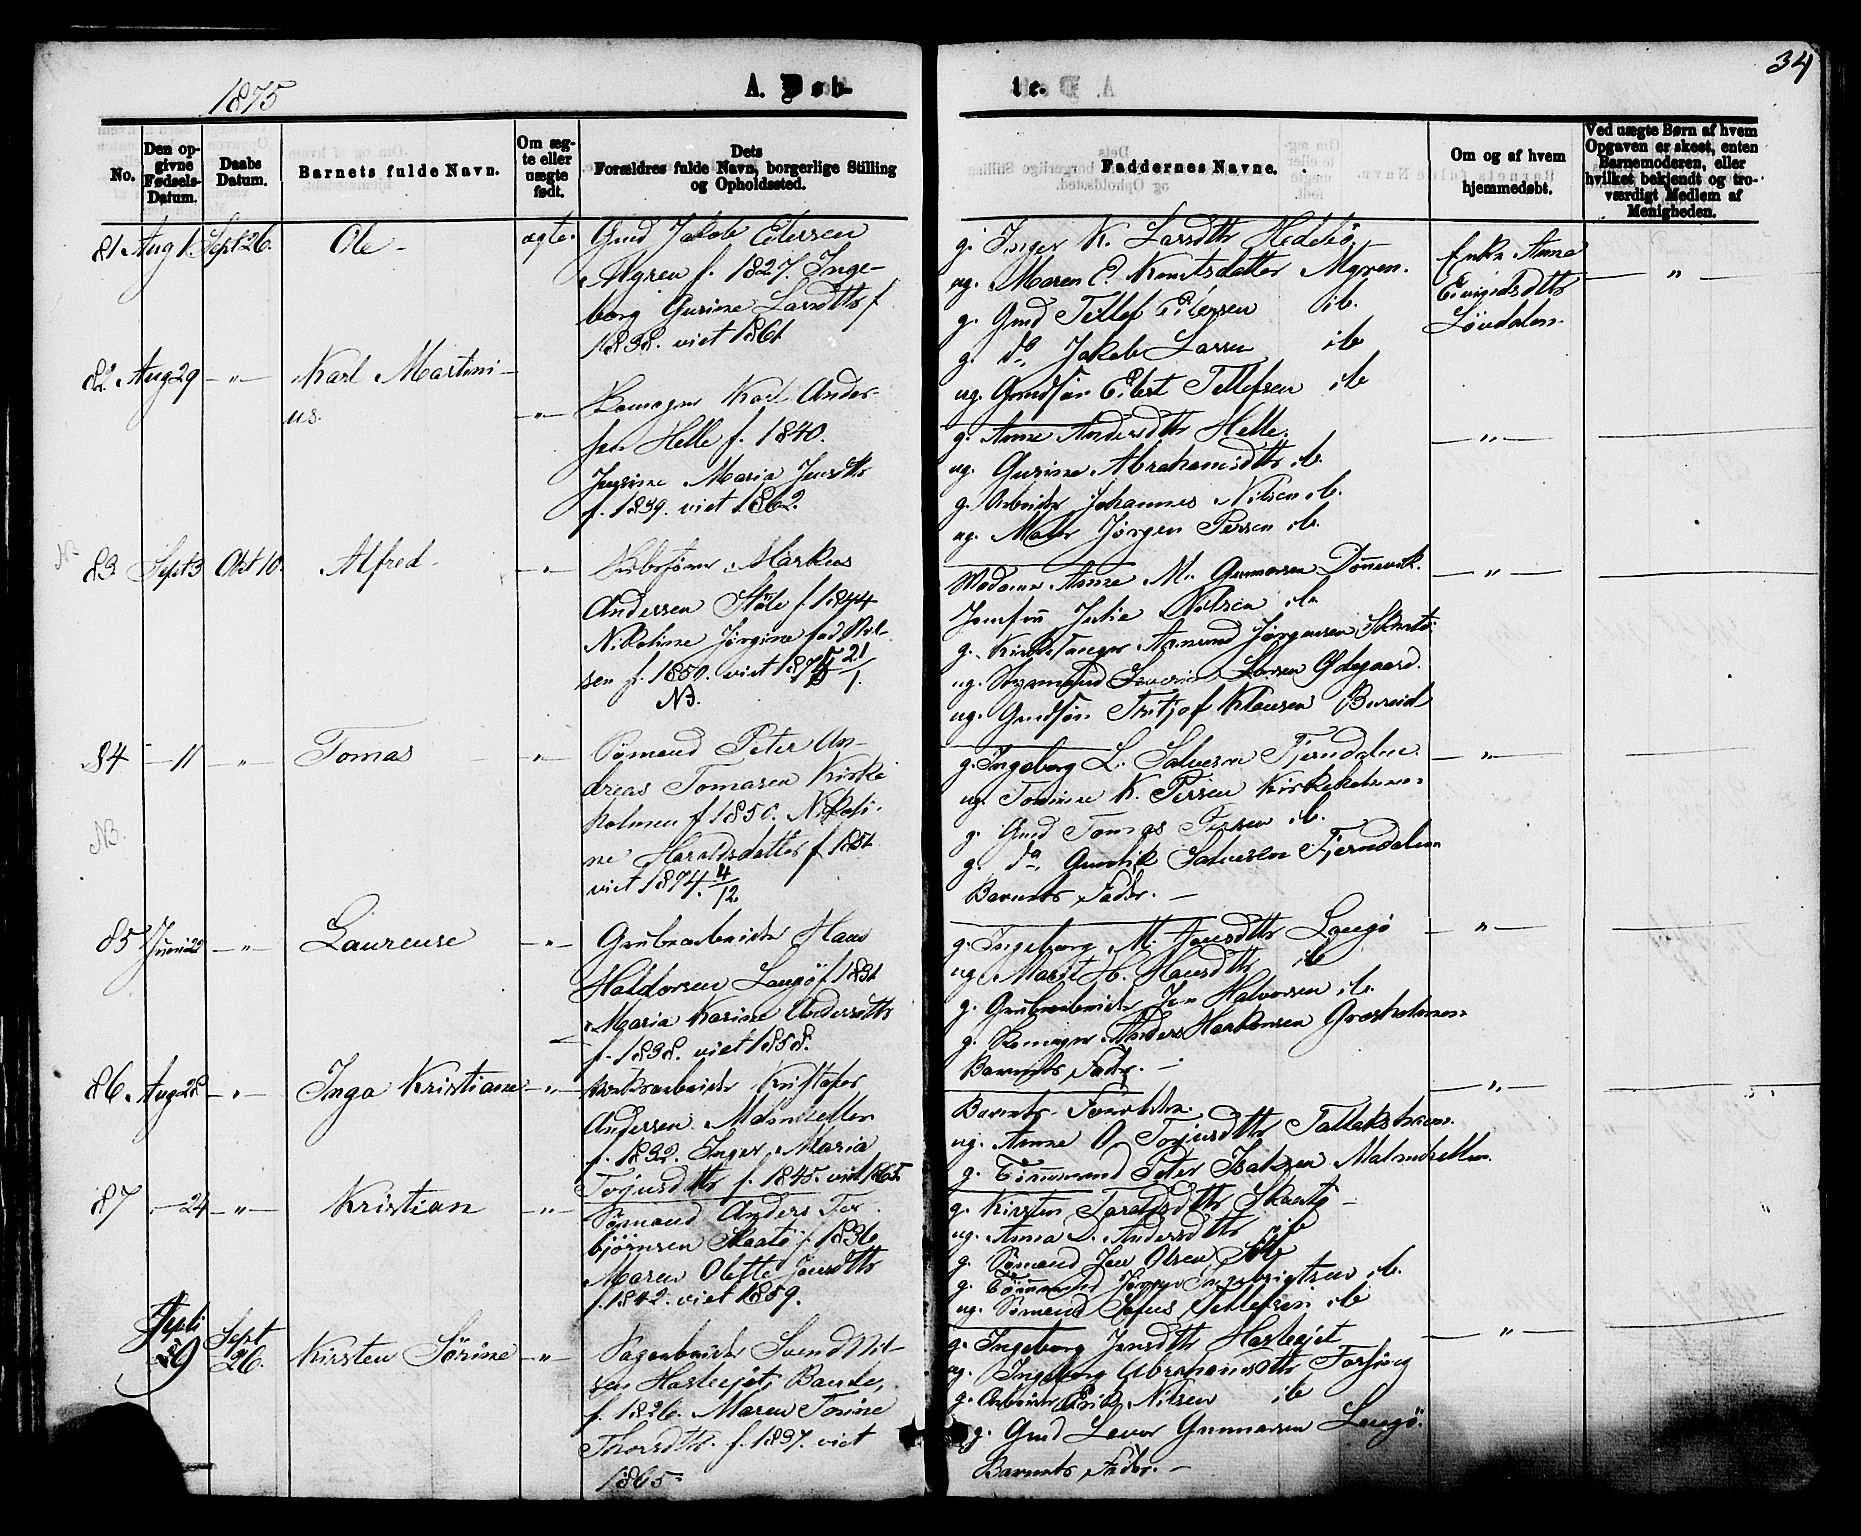 1875
A. Døb-
te.
34
No.
Den op-
givne
Fødsels-
Datum.
Daabs
Datum.
Barnets fulde Navn.
Om æg-
te eller
uægte
født.
Dets
Forældres fulde Navn, borgerlige Stilling
og Opholdssted.
Faddernes Navne.
Om og af hvem
hjemmedøbt.
Ved uægte Børn af hvem
Opgaven er skeet, enten
Barnemoderen, eller
hvilket bekjendt og tro-
værdigt Medlem af
Menigheden.
81 Aug 1. Sept 26. Ole - ægte.
Gmd Jakob Eilersen
Myren f. 1827. Inge-
borg Gurine Larsdtr f
1838. viet 1861
g. Inger K. Larsdtr
ug. Maren E. Knutsdatter Myren.
g. Gmd Tellef Eilersen ib
g. do Jakob Larsen ib
ug. Gmdsøn Eilert Tellefsen ib
Enke Anne
Eivindsdtr
Løvdalen.
"
82 Aug 29 -"- Karl Martini-
us. -"-
Karl Ander-
sen Helle f. 1840.
Maria Jensdtr
f. 1839. viet 1862.
g. Anne Andersdtr Helle.
ug. Gurine Abrahamsdtr ib.
g. Arbeider Johannes Nilsen ib.
ug. Jørgen Persen ib.
-"-
83 Sept 3 Okt 10. Alfred - -"-
Markus
Andersen Støle f. 1844
Nikoline Jørgine fød Nil-
sen f. 1850. viet 1875 21/1.
NB.
Madame Anne M. Gunnarsen
Jomfru Julie Nilsen ib.
g. Kirkesanger Amund Jørgensen
ug. Styrmand Larsen Ødegaard.
ug. Gmdsøn Klausen
-"-
84 -11 -"- Tomas -"-
NB.
Sømand Peter An-
dreas Tomasen Kirke
holmen f 1850. Nikoli-
ne Haraldsdatter f 1851
viet 1874. 4/12
g. Ingeborg L. Salvesen Fjerndalen.
ug. K. Persen Kirkeholmen
g. Gmd Tomas Persen ib.
g. do. Salvesen Fjerndalen
Barnets Fader. -
-"-
85 Juni 22 -"- Laurense -"-
Grubearbeider Hans
Haldorsen Langø f 1831
Maria Karine Andersdtr
f. 1838. viet 1858.
g. Ingeborg M. Jensdtr Langø
ug. Marit H. Hansdtr ib
g. Grubearbeider Jon Halvorsen ib.
g. Anders Haakensen Græsholmen
Barnets Fader. -
-"-
86 Aug 28 -"- Inga Kristiane -"-
Kristofer
Andersen Malmhellen
f. 1832. Inger Maria
Torjusdtr f. 1845. viet 1865
Barnets Forældre.
ug. Anne O. Torjusdtr
g. Tømmermand Peter Isaksen Malmhellen
-"-
87 -24 -"- Kristian -"-
Sømand Anders Tor-
bjørnsen Skaatø f. 1836
Maren Olette Jensdtr
f. 1842. viet 1859.
g. Kirsten Taraldsdtr Skaatø -
ug. Anna D. Andersdtr ib
g. Sømand Jon Olsen
g. Tømmermand Jørgen Ingebrigtsen ib.
ug. Sømand Tellefsen ib
Sept 26. Kirsten Sørine -"-
Sagarbeider Svend Nil-
sen
f. 1826. Maren Torine
Thorsdtr. f. 1837. viet
1865.
g. Ingeborg Jensdtr
ug. Ingeborg Abrahamsdtr
g. Arbeider Erik Nilsen ib
g. Gmd Levor Gunnarsen Langø.
Barnets Fader. -
-"-